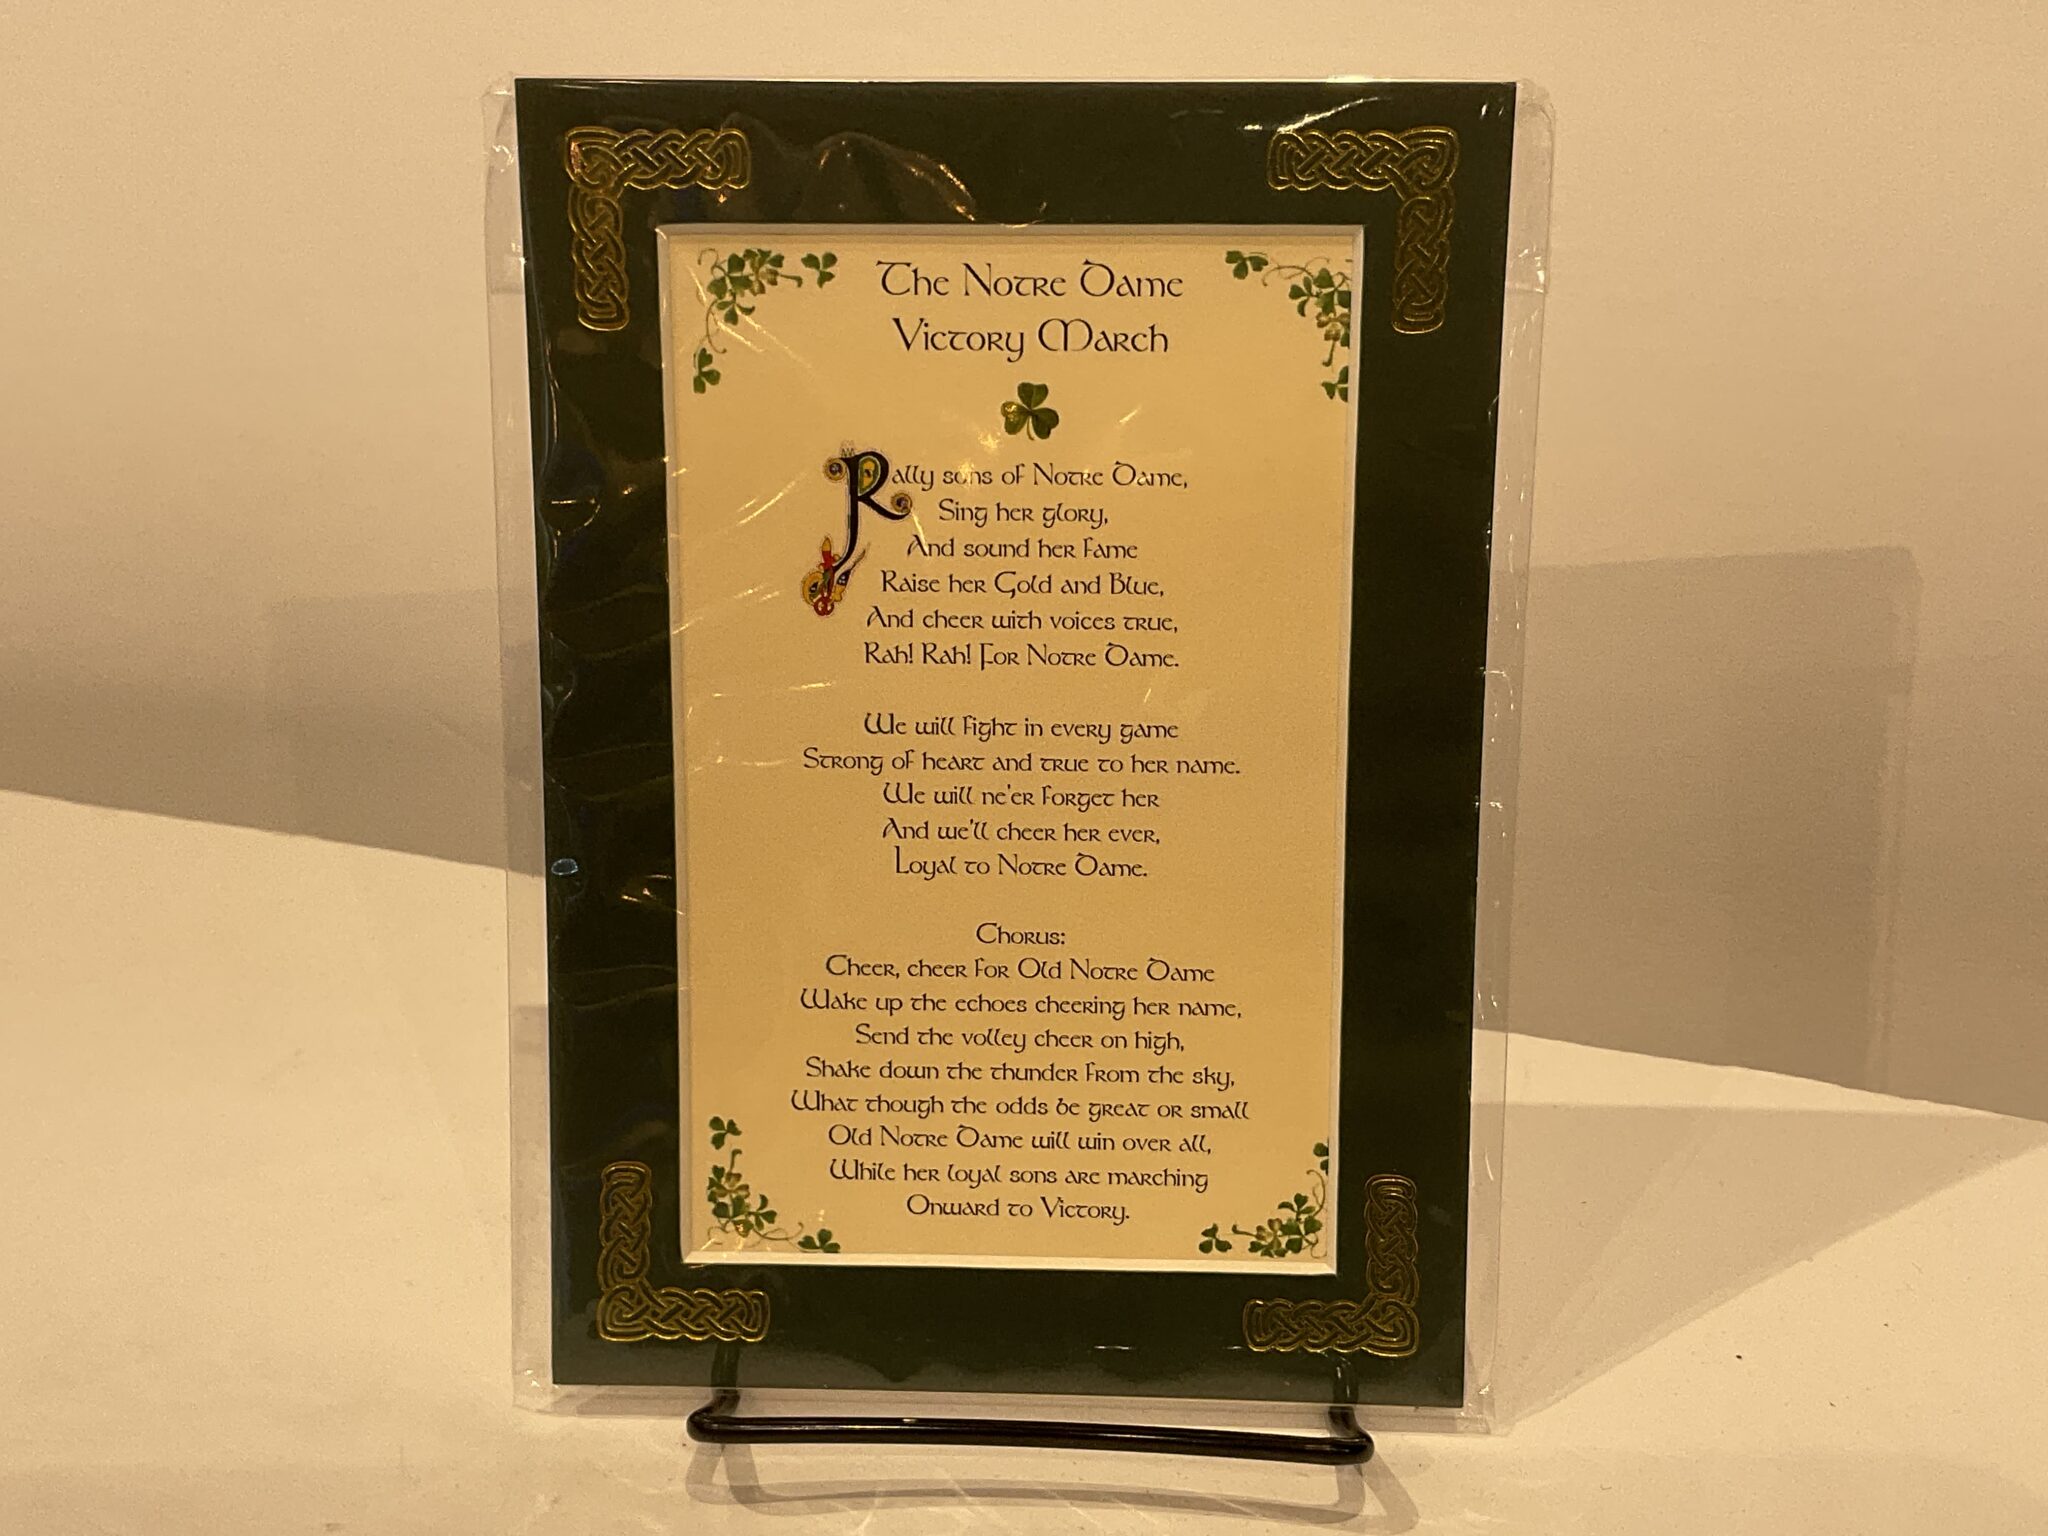 The Notre Dame
Victory March
Rally sons of Notre Dame,
Sing her glory,
And sound her fame
Raise her Gold and Blue,
And cheer with voices true,
Rah! Rah! For Notre Dame.
We will fight in every game
Strong of heart and true to her name.
We will ne'er forget her
And we'll cheer her ever,
Loyal to Notre Dame.
Chorus:
Cheer, cheer for Old Notre Dame
Wake up the echoes cheering her name,
Send the volley cheer on high,
Shake down the thunder from the sky,
What though the odds be great or small
Old Notre Dame will win over all,
While her loyal sons are marching
Onward to Victory.